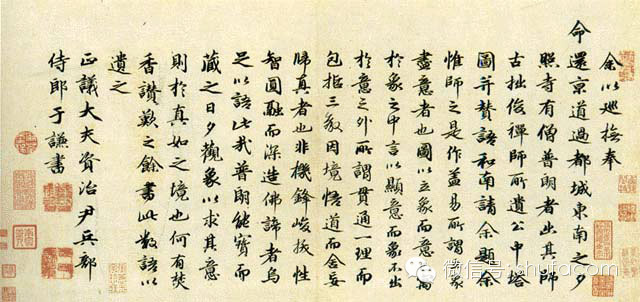 余以巡撫奉
命還京道過都城東南之夕
照寺有僧普朗者出其師
古拙俊禪師所遺公中塔
圖并贊語和南請余題余
惟師之是作蓋易所謂立象
盡意者也圖以立象而意寓
於象之中言以顯意而象不出
於意之外所謂貫通一理而
包括三教因境悟道而舍妄
歸真者也非機鋒峻拔性
智圓融而深造佛諦者烏
足以語此哉普朗能寶而
藏之日夕觀象以求其意
則於真如之境也何有焚
香讚歎之餘書此數語以
遺之
正議大夫資治尹兵部
侍郎于謙書
微信号: shufacn